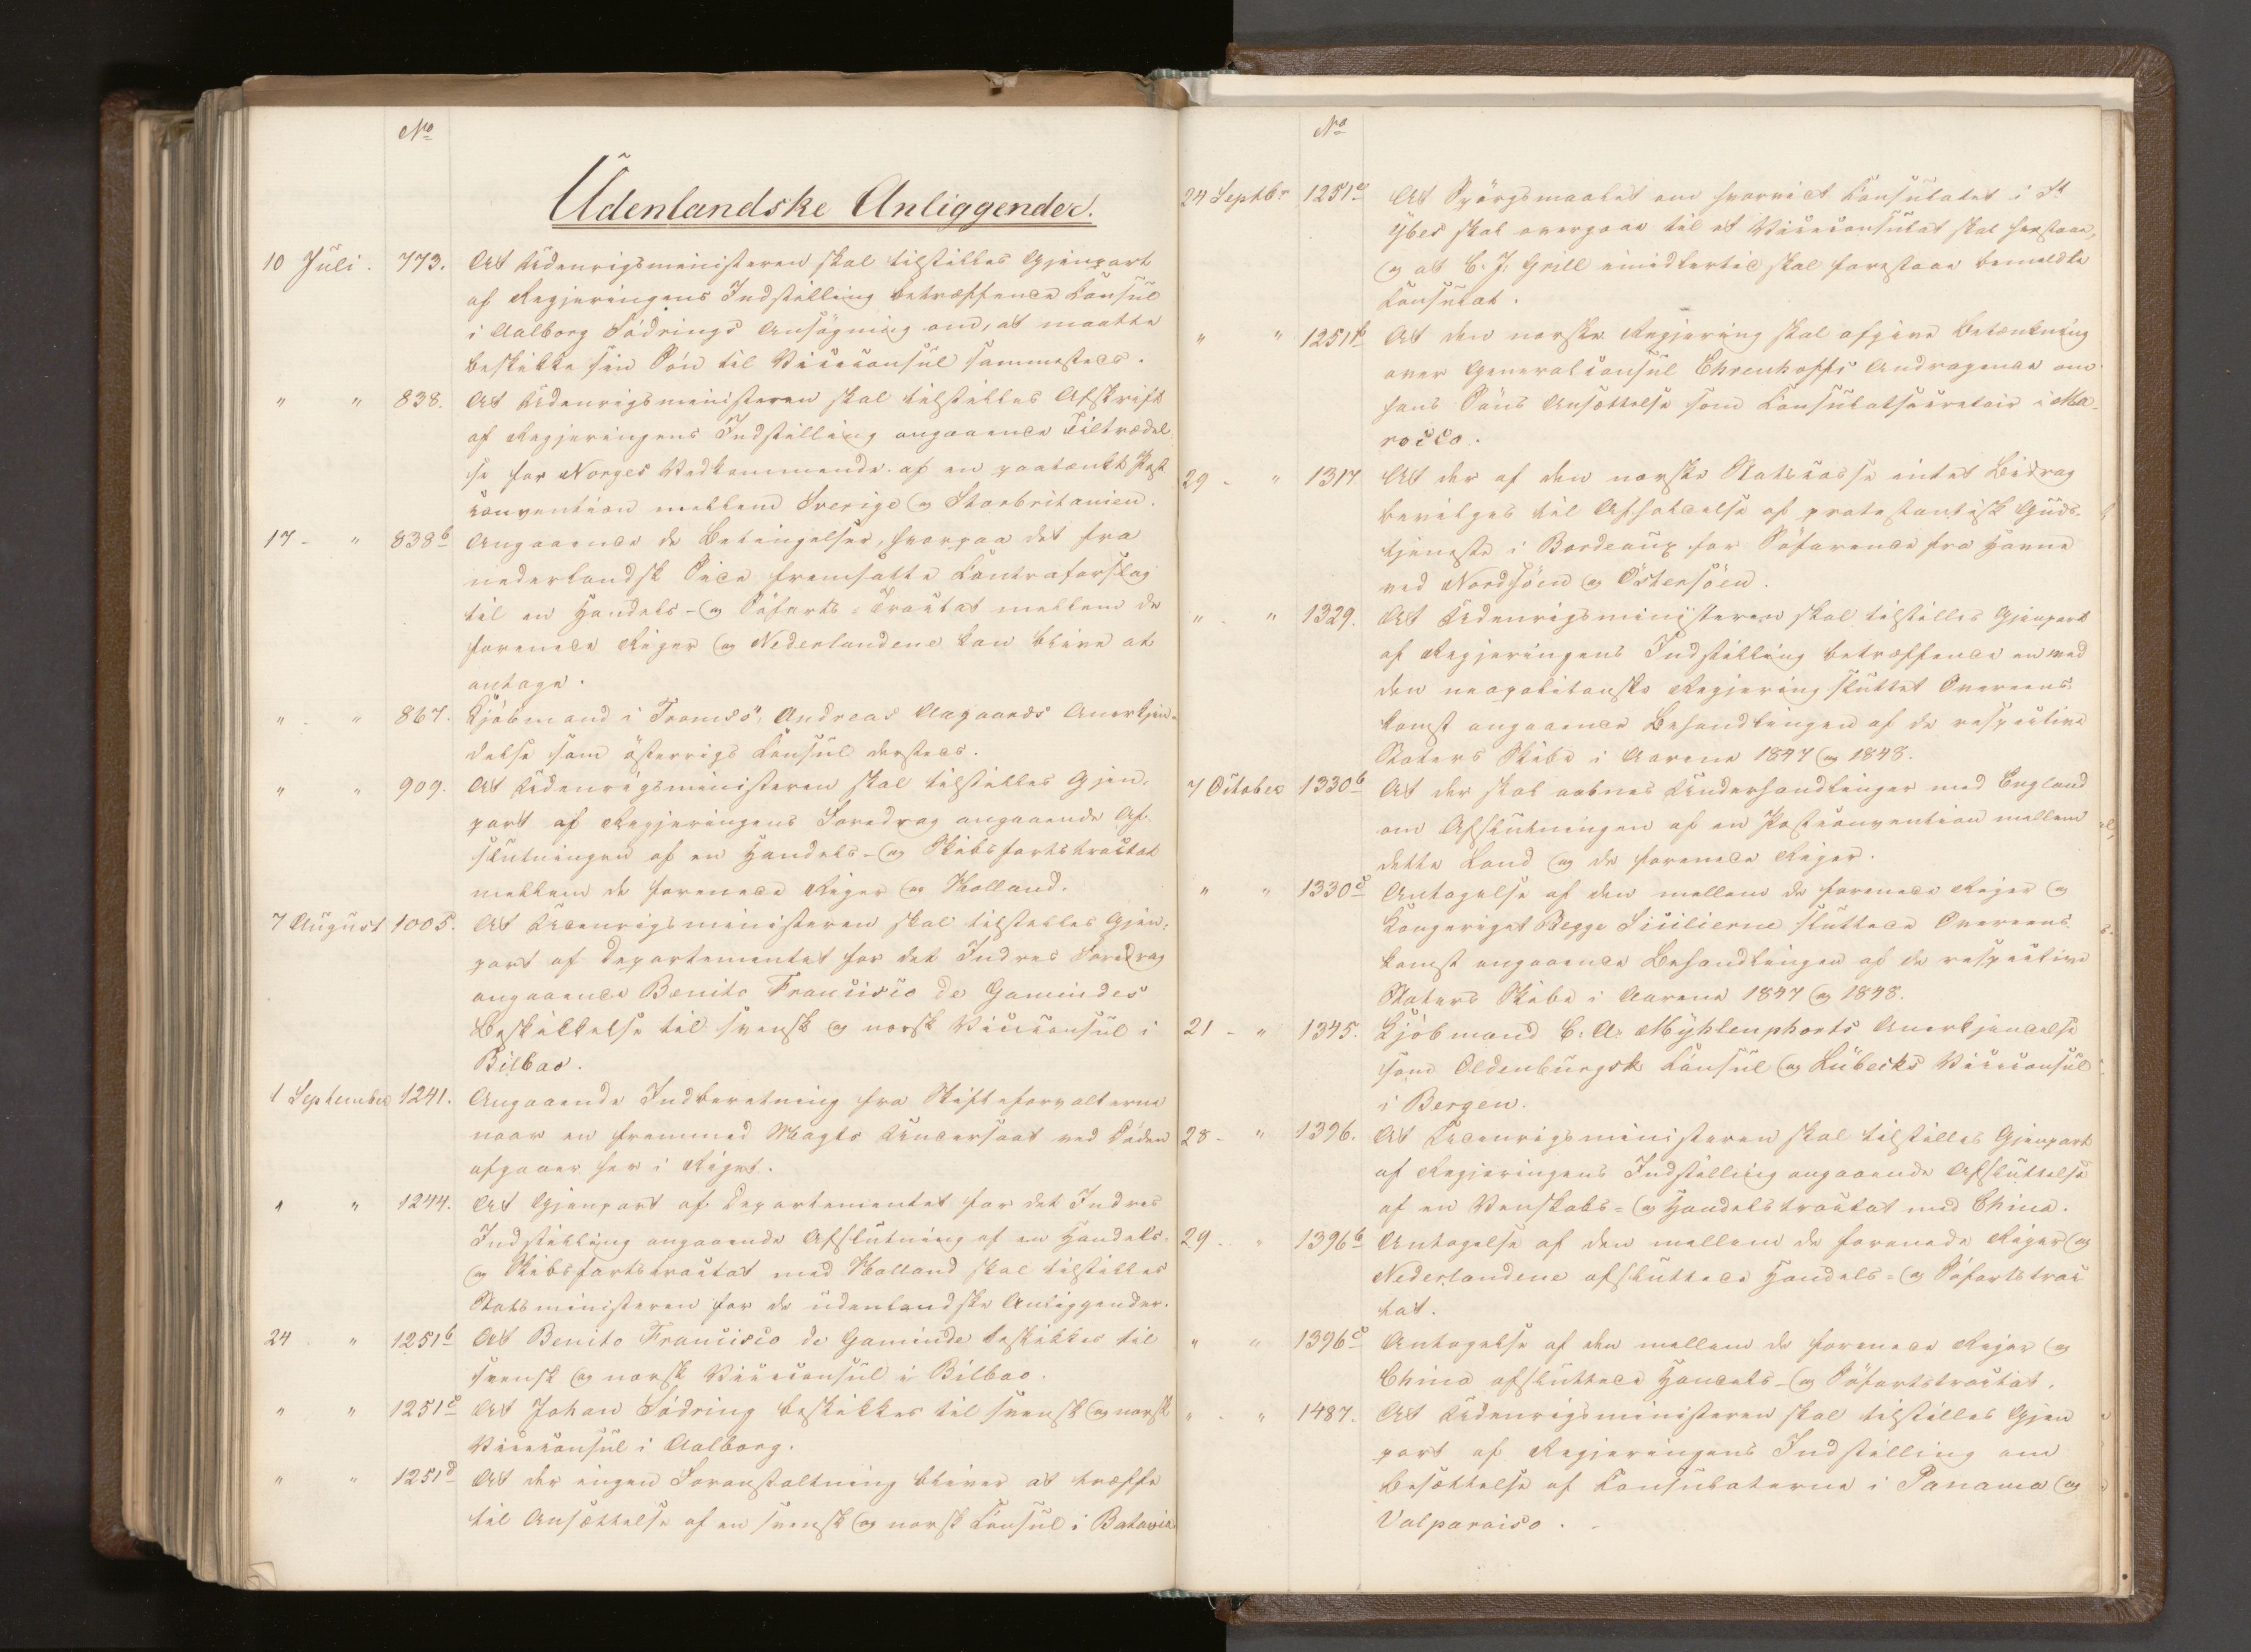 No
Udenlandske Anliggender.
10 Juli. 773. At Udenrigsministeren skal tilstilles Gjenpart
af Regjeringens Indstilling betræffende Consul
i Aalborg Södrings Ansögning om, at maatte
beskikke sin Sön til Viceconsul sammesteds.
" " 838. At Udenrigsministeren skal tilstilles Afskrift
af Regjeringens Indstilling angaaende Tiltrædel
se for Norges Vedkommende af en paatænkt Post
convention mellem Sverige og Storbritanien.
17 - " 838b Angaaende de Betingelser, hvorpaa det fra
nederlandsk Side fremsatte Contraforslag
til en Handels- og Söfarts-Tractat mellem de
forenede Riger og Nederlandene kan blive at
antage.
" - " 867. Kjöbmand i Tromsö, Andreas Aagaards Anerkjen-
delse som österrigs Consul dersteds.
" " 909. At Udenrigsministeren skal tilstilles Gjen-
part af Regjeringens Foredrag angaaende Af-
slutningen af en Handels- og Skibsfartstractat
mellem de forenede Riger og Holland.
7 August 1005. At Udenrigsministeren skal tilstilles Gjen-
part af Departementet for det Indres Foredrag
angaaende Benito Francisco de Gamindes
Beskikkelse til svensk og norsk Viceconsul i
Bilbao.
1 September 1241. Angaaende Indberetning fra Skifteforvalterne
naar en fremmed Magts Undersaat ved Döden
afgaaer her i Riget.
" " 1244. At Gjenpart af Departementet for det Indres
Indstilling angaaende Afslutning af en Handels-
og Skibsfartstractat med Holland skal tilstilles
Statsministeren for de udenlandske Anliggender.
24 - " 1251b At Benito Francisco de Gaminde beskikkes til
svensk og norsk Viceconsul i Bilbao.
" " 1251c At Johan Södring beskikkes til svensk og norsk
Viceconsul i Aalborg.
" " 1251d At der ingen Foranstaltning bliver at træffe
til Ansættelse af en svensk og norsk Consul i Batavia.
No
24 Septbr 1251e At Spörgsmaalet om hvorvidt Consulatet i St
Ybes skal overgaae til et Viceconsulat skal henstaae,
og at C. J. Grill imidlertid skal forestaae bemeldte
Consulat.
" " 1251f At den norske Regjering skal afgive Betænkning
over Generalconsul Ehrenhoffs Andragende om
hans Söns Ansættelse som Consulatsecretair i Ma-
rocco.
29 - " 1317 At der af den norske Statscasse intet Bidrag
bevilges til Afholdelse af protestantisk Guds-
tjeneste i Bordeaux for Söfarende fra Havne
ved Nordsöen og Östersöen.
" - " 1329. At Udenrigsministeren skal tilstilles Gjenpart
af Regjeringens Indstilling betræffende en med
den neapolitanske Regjering sluttet Overeens-
komst angaaende Behandlingen af de respective
Staters Skibe i Aarene 1847 og 1848.
7 October 1330b At der skal aabnes Underhandlinger med England
om Afslutningen af en Postconvention mellem
dette Land og de forenede Riger.
" " 1330c Antagelse af den mellem de forenede Riger og
Kongeriget Begge Sicilierne sluttede Overeens-
komst angaaende Behandlingen af de respective
Staters Skibe i Aarene 1847 og 1848.
21 - " 1345. Kjöbmand C. A. Mÿhlenphorts Anerkjendelse
som Oldenburgsk Consul og Lübecks Viceconsul
i Bergen.
28 - " 1396. At Udenrigsministeren skal tilstilles Gjenpart
af Regjeringens Indstilling angaaende Afsluttelse
af en Venskabs- og Handelstractat med China.
29 - " 1396b Antagelse af den mellem de forenede Riger og
Nederlandene afsluttede Handels- og Söfartstrac
tat.
" " 1396c Antagelse af den mellem de forenede Riger og
China afsluttede Handels- og Söfartstractat.
" - " 1487. At Udenrigsministeren skal tilstilles Gjen
part af Regjeringens Indstilling om
Besættelse af Consulaterne i Panama og
Valparaiso.